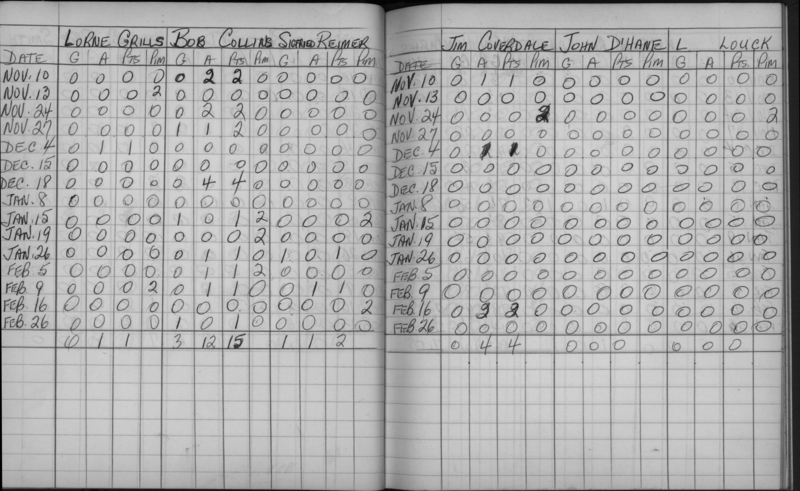 LORNE GRILLS BOB COLLINS SIGFRIED REIMER
DATE G A Pts Pim G A Pts Pim G A Pts Pim
NOV. 10 0 0 0 0 0 2 2 0 0 0 0 0
NOV. 13 0 0 0 2 0 0 0 0 0 0 0 0
NOV. 24 0 0 0 0 0 2 2 0 0 0 0 0
NOV. 27 0 0 0 0 1 1 2 0 0 0 0 0
DEC 4 0 1 1 0 0 0 0 0 0 0 0 0
DEC. 15 0 0 0 0 0 0 0 0 0 0 0 0
DEC. 18 0 0 0 0 0 4 4 0 0 0 0 0
JAN. 8 0 0 0 0 0 0 0 0 0 0 0 0
JAN. 15 0 0 0 0 1 0 1 2 0 0 0 2
JAN. 19 0 0 0 0 0 0 0 2 0 0 0 0
JAN. 26 0 0 0 0 0 1 1 0 1 0 1 0
FEB. 5 0 0 0 0 0 1 1 2 0 0 0 0
FEB. 9 0 0 0 2 0 1 1 0 0 1 1 0
FEB. 16 0 0 0 0 0 0 0 0 0 0 0 2
FEB. 26 0 0 0 0 1 0 1 0 0 0 0 0
0 1 1 3 12 15 1 1 2
JIM COVERDALE JOHN D'IHANE L LOUCK
DATE G A Pts Pim G A Pts Pim G A Pts Pim
NOV. 10 0 1 1 0 0 0 0 0 0 0 0 0
NOV. 13 0 0 0 0 0 0 0 0 0 0 0 0
NOV. 24 0 0 0 2 0 0 0 0 0 0 0 2
NOV. 27 0 0 0 0 0 0 0 0 0 0 0 0
DEC. 4 0 1 1 0 0 0 0 0 0 0 0 0
DEC. 15 0 0 0 0 0 0 0 0 0 0 0 0
DEC. 18 0 0 0 0 0 0 0 0 0 0 0 0
JAN. 8 0 0 0 0 0 0 0 0 0 0 0 0
JAN. 15 0 0 0 0 0 0 0 0 0 0 0 0
JAN. 19 0 0 0 0 0 0 0 0 0 0 0 0
JAN. 26 0 0 0 0 0 0 0 0 0 0 0 0
FEB. 5 0 0 0 0 0 0 0 0 0 0 0 0
FEB. 9 0 0 0 0 0 0 0 0 0 0 0 0
FEB. 16 0 2 2 0 0 0 0 0 0 0 0 0
FEB. 26 0 0 0 0 0 0 0 0 0 0 0 0
0 4 4 0 0 0 0 0 0